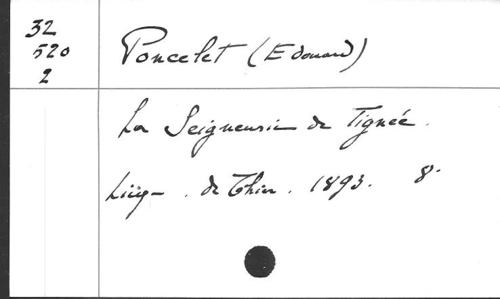 32
520
2
Poncelet (Edouard)
La Seigneurie de Tignée.
Liége. de Thier. 1893. 8.